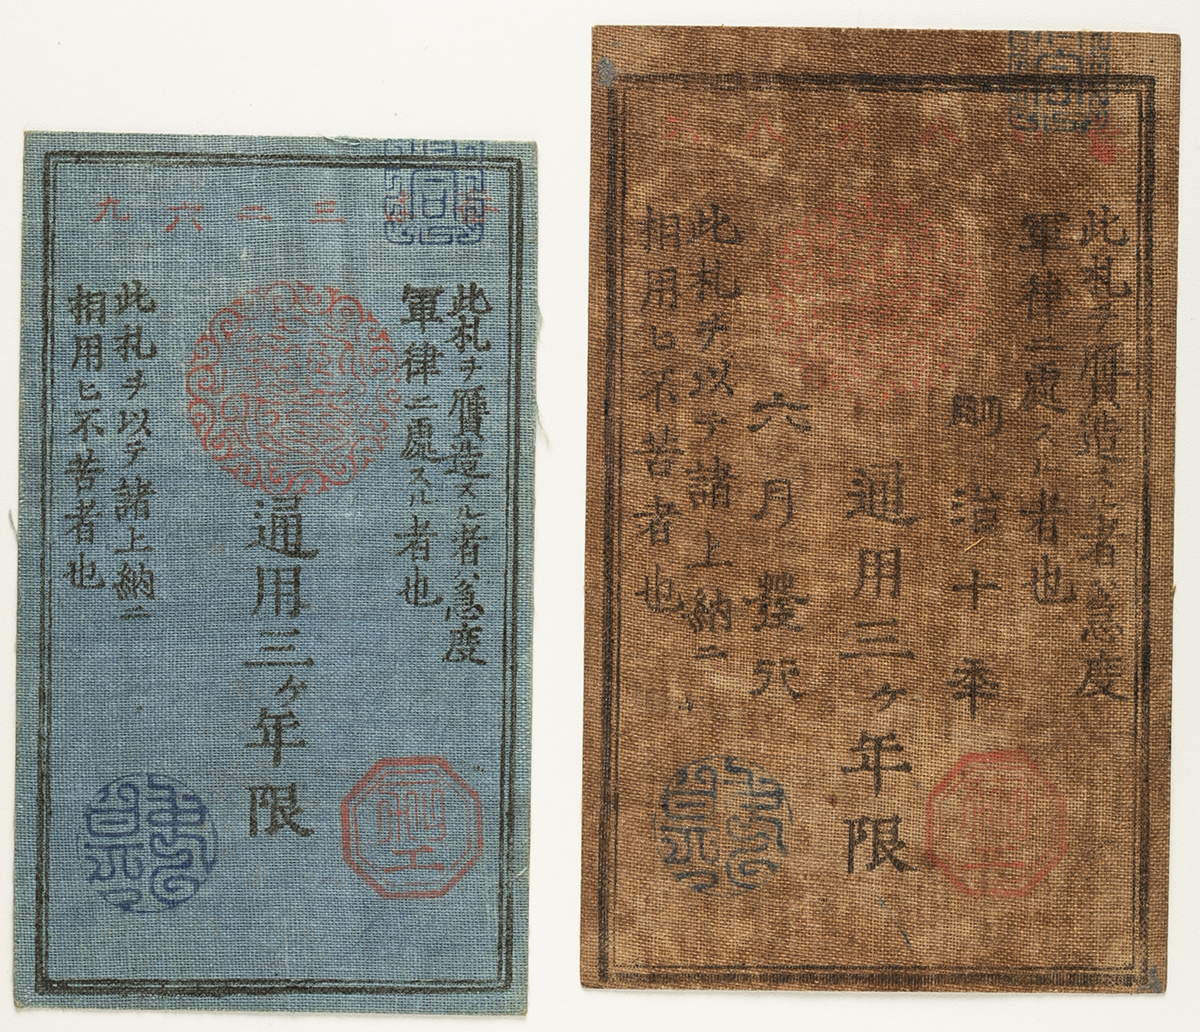 三二六九
此札ヲ贋造スル者ハ急度
軍律ニ處スル者也
通用三ヶ年限
此札ヲ以テ諸上納ニ
相用ヒ不苦者也
此札ヲ贋造スル者ハ急度
軍律ニ處スル者也
明治十年
通用三ヶ年限
六月發行
此札ヲ以テ諸上納ニ
相用ヒ不苦者也